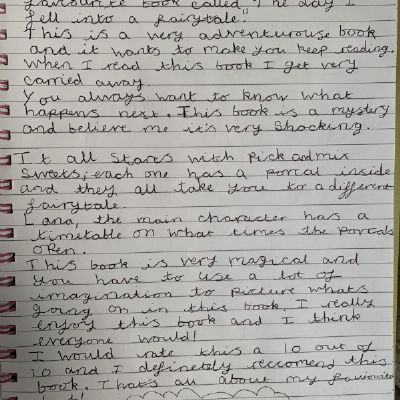 favourite book called "The day I
fell into a fairytale."
This is a very adventurouse book
and it wants to make you keep reading.
When I read this book I get very
carried away.
You always want to know what
happens next. This book is a mystery
and believe me it's very shocking.
It all stares with pick and mix
sweets, each one has a portal inside
and they all take you to a different
fairytale.
Lana, the main character has a
timetable on what times the portals
open.
This book is very magical and
you have to use a lot of
imagination to picture whats
going on in this book. I really
enjoy this book and I think
everyone would!
I would rate this a 10 out of
10 and I definetely reccomend this
book. That's all about my favourite